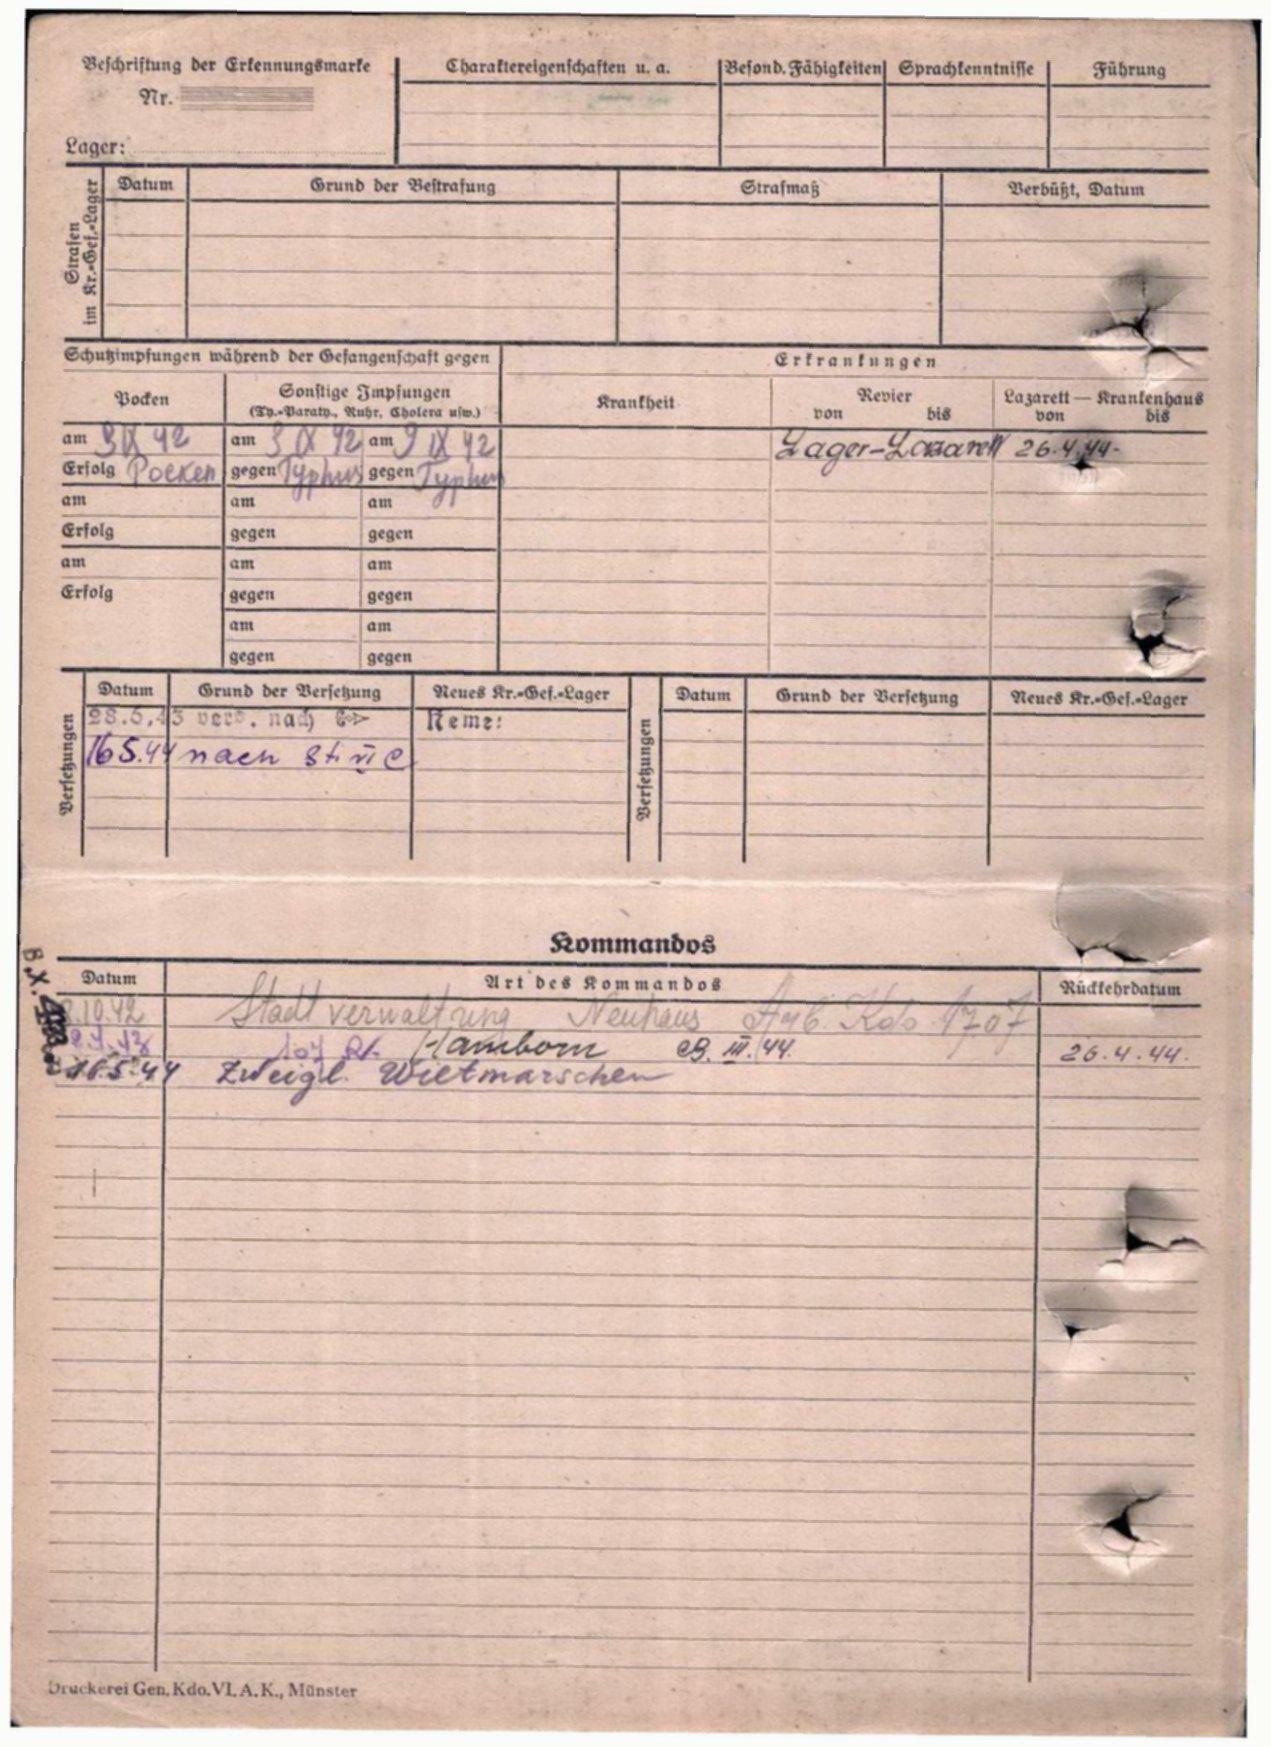 Beschriftung der Erkennungsmarke
Nr.
Lager:
Charaktereigenschaften u. a.
Besond. Fähigkeiten
Sprachkenntnisse
Führung
Strafen im Kr.-Gef.-Lager
Datum
Grund der Bestrafung
Strafmaß
Verbüßt, Datum
Schutzimpfungen während der Gefangenschaft gegen
Erkrankungen
Pocken
Sonstige Impfungen
(Ty.-Paraty., Ruhr, Cholera usw.)
Krankheit
Revier
von bis
Lazarett — Krankenhaus
von bis
am 9 IX 42 am 9 IX 42 am 9 IX 42
Lager-Lazarett 26.4.44-
Erfolg Pocken gegen Typhus gegen Typhus
am am am
Erfolg gegen gegen
am am am
Erfolg gegen gegen
am am
gegen gegen
Versetzungen
Datum Grund der Versetzung Neues Kr.-Gef.-Lager
28.6.43 vers. nach
16.5.44 nach St. VI C
Versetzungen
Datum Grund der Versetzung Neues Kr.-Gef.-Lager
Kommandos
Datum Art des Kommandos Rückkehrdatum
.10.42 Stadtverwaltung Neuhaus Arb. Kdo 1707
107 R. Hamborn III. 44. 26.4.44.
16.5.44 Zweigl. Wietmarschen
Druckerei Gen. Kdo. VI. A. K., Münster